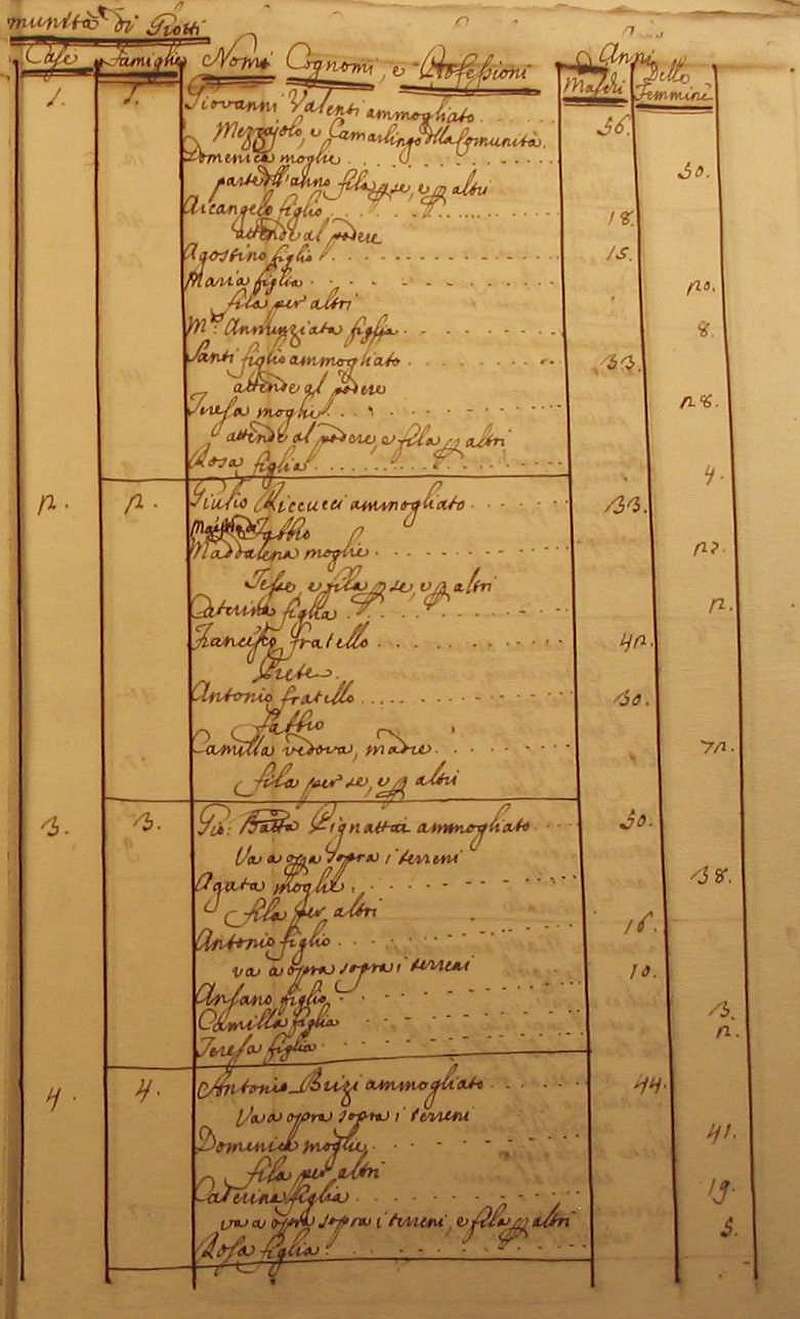 munità di Piotti
Anni
Case Famiglie Nomi Cognomi, e Professioni Maschi Delle Femmine
1. 1. Giovanni Valenti ammogliato 56.
Mezzajolo, e Camarlingo della Comunità.
Domenica moglie 50.
parte dell'anno fila p se, e p altri
Arcangelo figlio 18.
attende al podere
Agostino figlio 15.
Maria figlia 20.
fila per altri
M.a Annunziata figlia 8.
Santi figlio ammogliato 33.
attende al podere
Teresa moglie 28.
attende al podere, e fila p altri
Rosa figlia 4.
2. 2. Giulio Riccucci ammogliato 33.
Fabbio
Maddalena moglie 27.
Tesse, e fila p se, e p altri
Caterina figlia 2.
Francesco fratello 42.
Prete.
Antonio fratello 30.
Fabbio
Camilla vedova, madre 72.
fila per se, e p altri
3. 3. Gio: Batta Pignattai ammogliato 50.
Va a opra sopra i terreni
Agata moglie 38.
fila per altri
Antonio figlio 16.
va a opra sopra i terreni
Ansano figlio 10.
Camilla figlia 3.
Teresa figlia 2.
4. 4. Antonio Brizi ammogliato 44.
Va a opra sopra i terreni
Domenica moglie 41.
fila per altri
Caterina figlia 19.
va a opra sopra i terreni, e fila p altri
Rosa figlia 5.